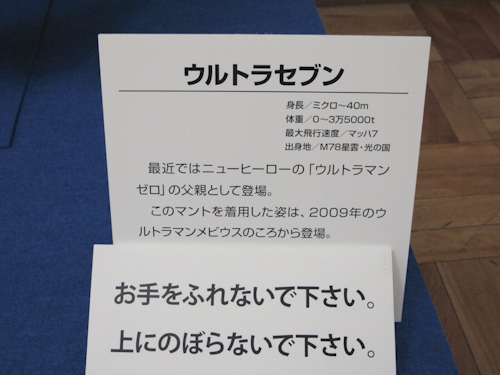 ウルトラセブン
身長／ミクロ～40m
体重／0～3万5000t
最大飛行速度／マッハ7
出身地／M78星雲・光の国
最近ではニューヒーローの「ウルトラマン
ゼロ」の父親として登場。
このマントを着用した姿は、2009年のウ
ルトラマンメビウスのころから登場。
お手をふれないで下さい。
上にのぼらないで下さい。